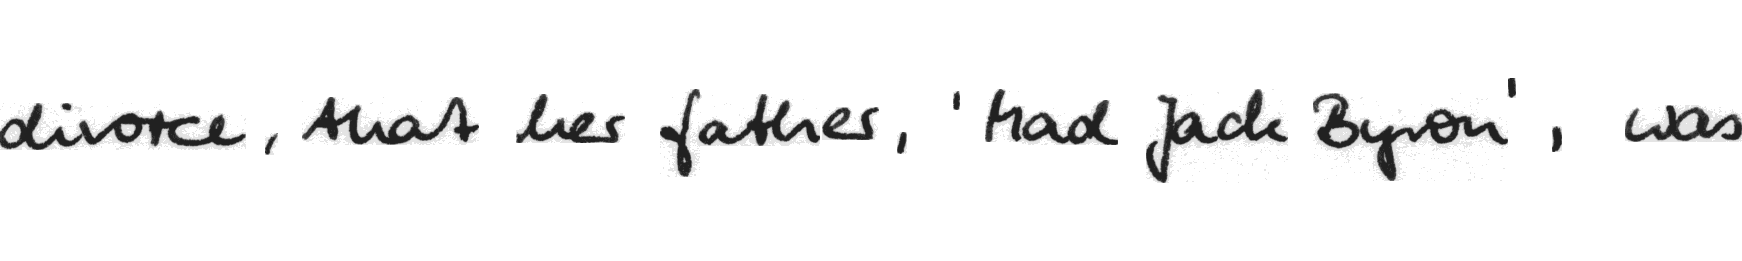 divorce, that her father, 'Mad Jack Byron', was